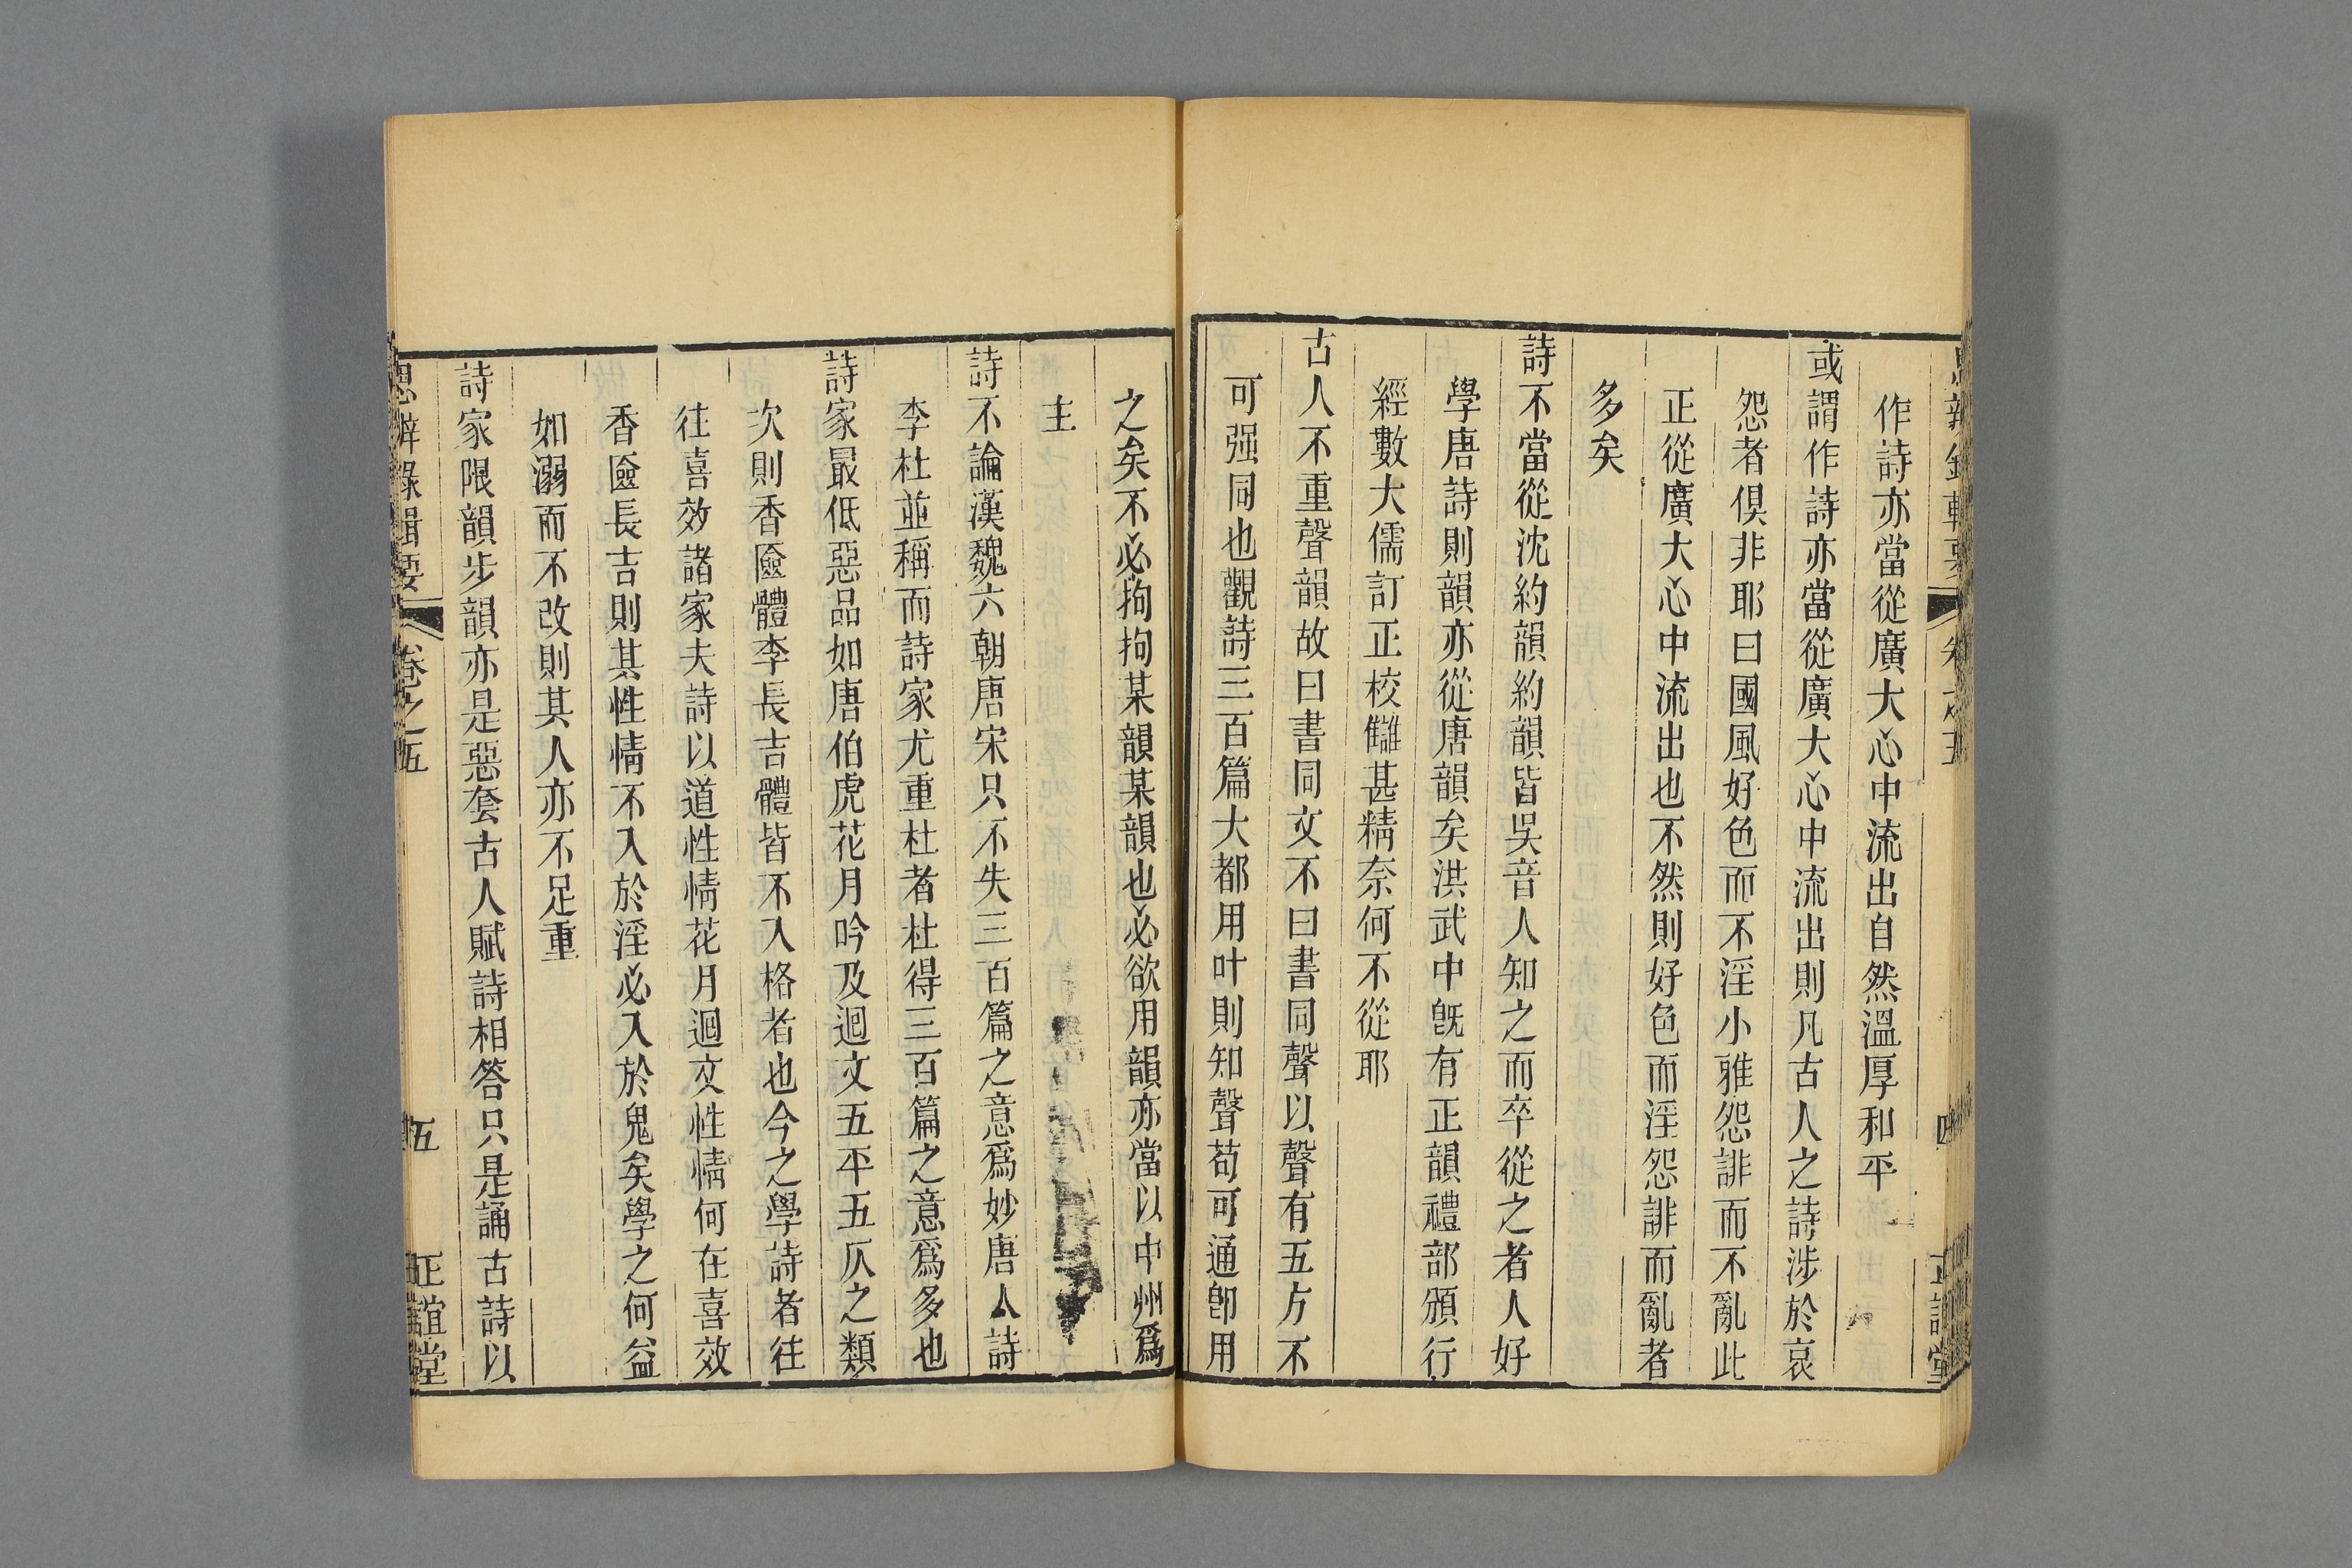 作詩亦當從廣大心中流出自然溫厚和平
或謂作詩亦當從廣大心中流出則凡古人之詩涉於哀
怨者俱非耶曰國風好色而不淫小雅怨誹而不亂此
正從廣大心中流出也不然則好色而淫怨誹而亂者
多矣
詩不當從沈約韻約韻皆吳音人知之而卒從之者人好
學唐詩則韻亦從唐韻矣洪武中旣有正韻禮部頒行
經數大儒訂正校讎甚精奈何不從耶
古人不重聲韻故曰書同文不曰書同聲以聲有五方不
可强同也觀詩三百篇大都用叶則知聲苟可通卽用
之矣不必拘拘某韻某韻也必欲用韻亦當以中州爲
主
詩不論漢魏六朝唐宋只不失三百篇之意爲妙唐人詩
李杜並稱而詩家尤重杜者杜得三百篇之意爲多也
詩家最低惡品如唐伯虎花月吟及迴文五平五仄之類
次則香匳體李長吉體皆不入格者也今之學詩者往
往喜效諸家夫詩以道性情花月迴文性情何在喜效
香匳長吉則其性情不入於淫必入於鬼矣學之何益
如溺而不改則其人亦不足重
詩家限韻步韻亦是惡套古人賦詩相答只是誦古詩以
思辨錄輯要 卷之五 五 正誼堂